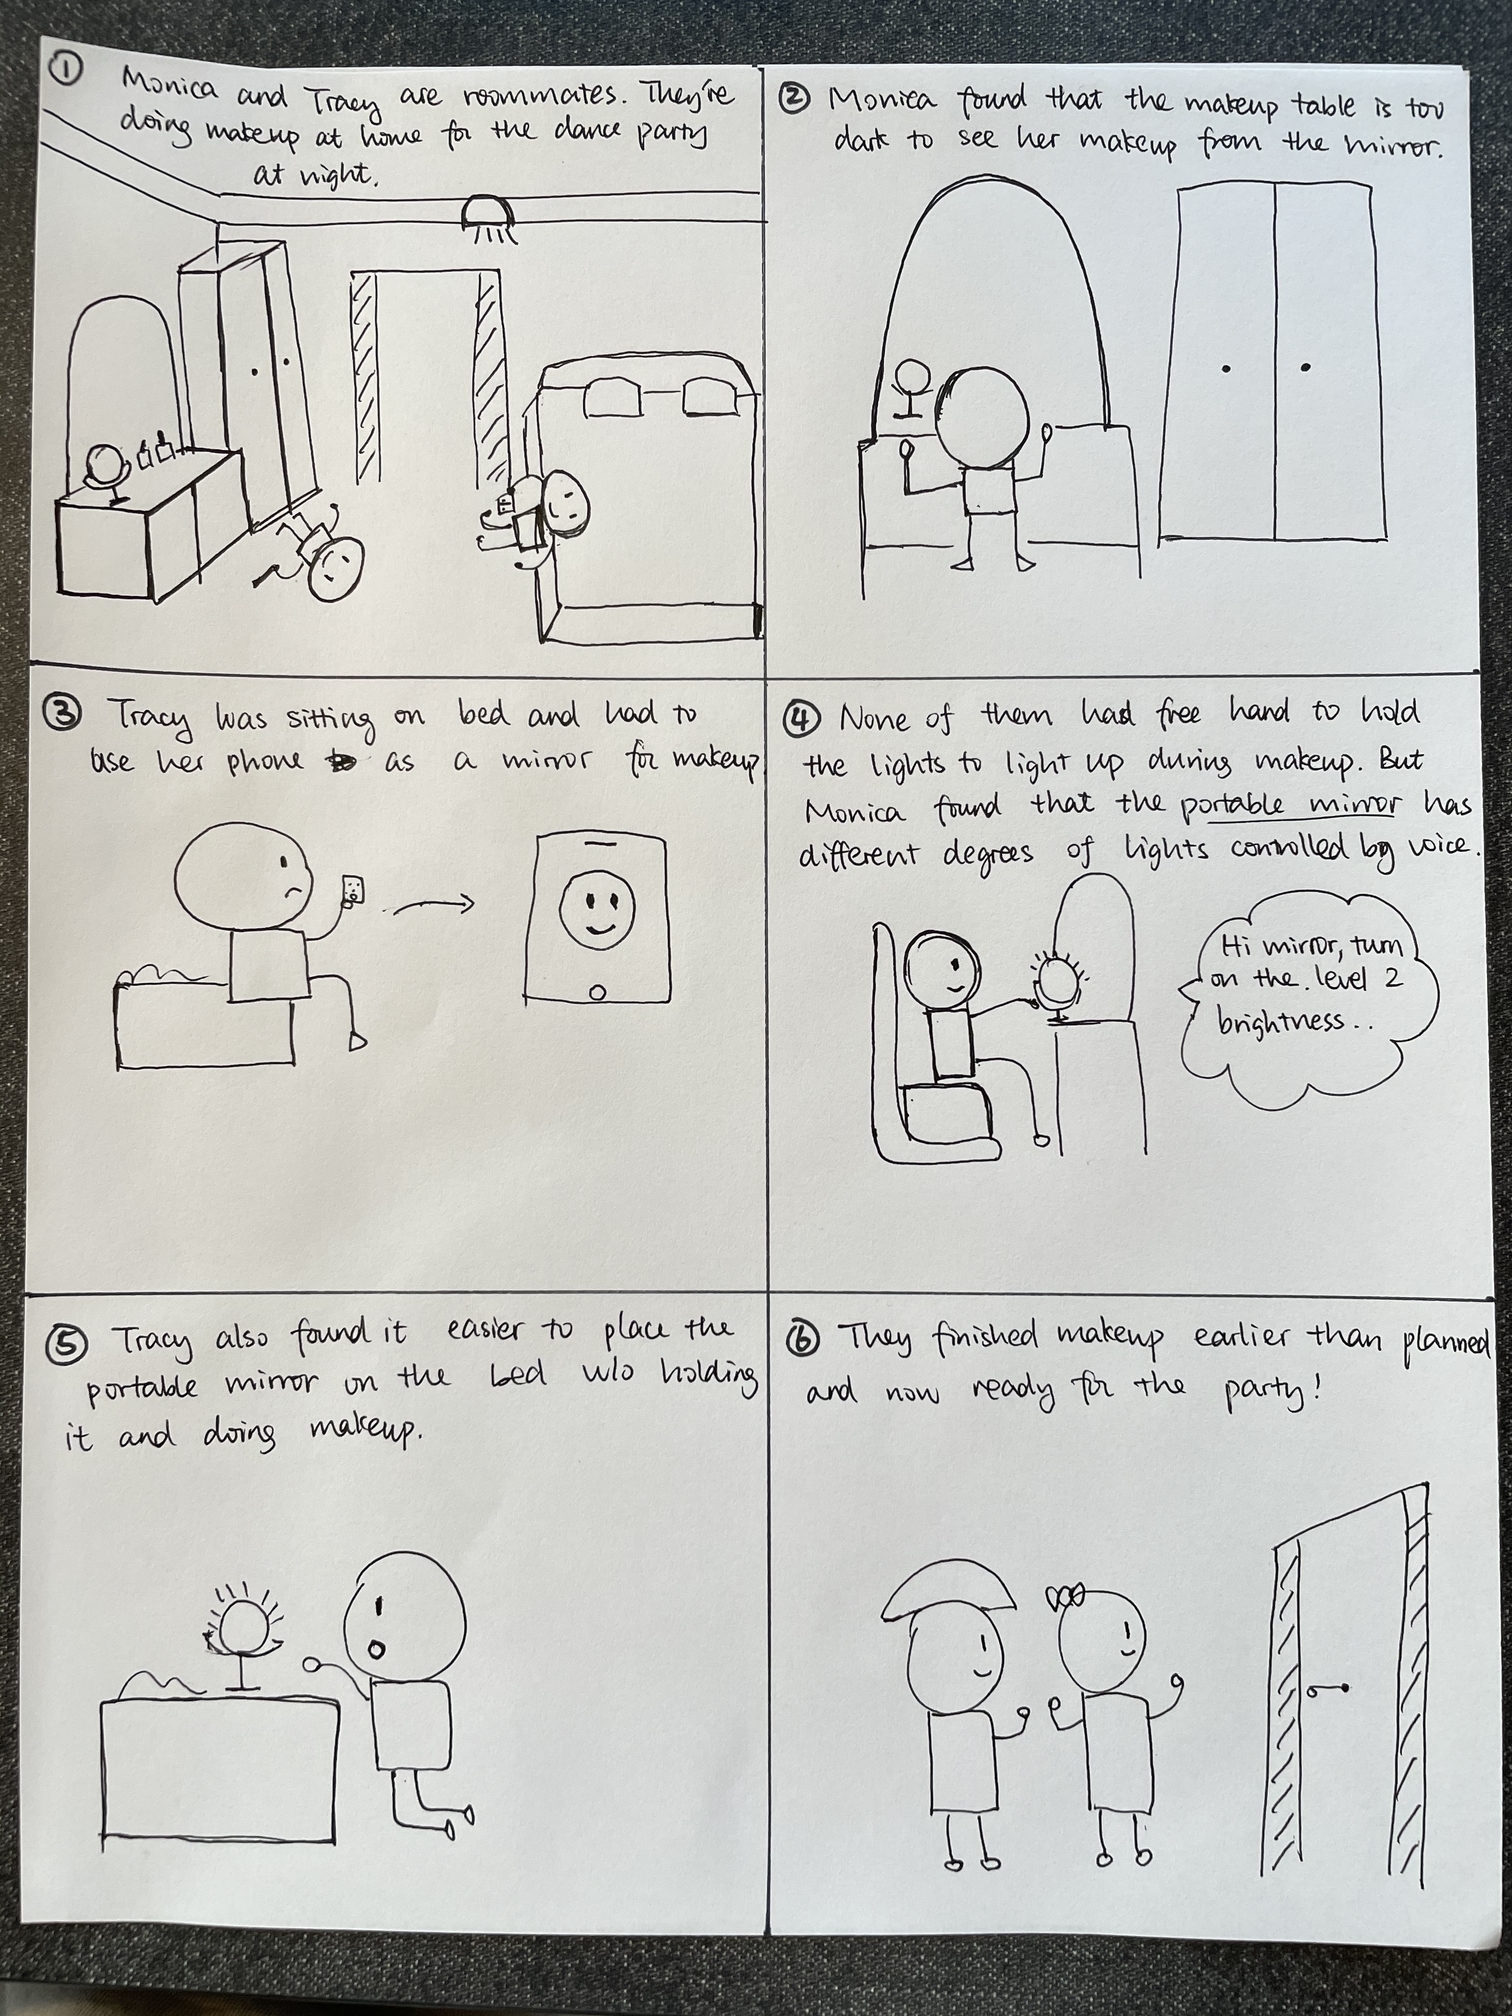 ① Monica and Tracy are roommates. They're
doing makeup at home for the dance party
at night.
② Monica found that the makeup table is too
dark to see her makeup from the mirror.
③ Tracy was sitting on bed and had to
use her phone as a mirror for makeup
④ None of them had free hand to hold
the lights to light up during makeup. But
Monica found that the portable mirror has
different degrees of lights controlled by voice.
Hi mirror, turn
on the level 2
brightness..
⑤ Tracy also found it easier to place the
portable mirror on the bed w/o holding
it and doing makeup.
⑥ They finished makeup earlier than planned
and now ready for the party!